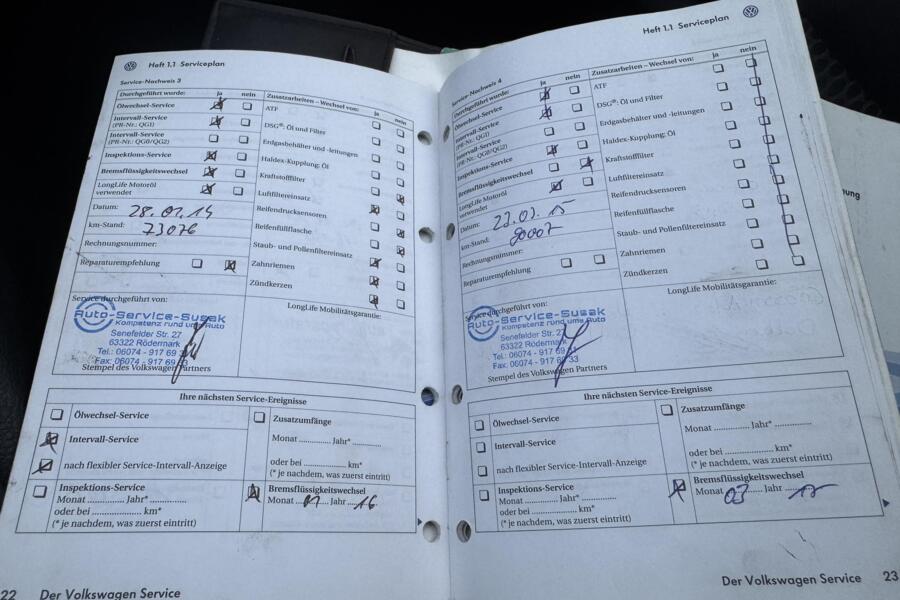 Heft 1.1 Serviceplan
Service-Nachweis 3
Durchgeführt wurde: ja nein
Ölwechsel-Service
Intervall-Service
(PR-Nr.: QG1)
Intervall-Service
(PR-Nr.: QG0/QG2)
Inspektions-Service
Bremsflüssigkeitswechsel
LongLife Motoröl
verwendet
Datum: 28.01.14
km-Stand: 73076
Rechnungsnummer:
Reparaturempfehlung
Zusatzarbeiten – Wechsel von: ja nein
ATF
DSG®: Öl und Filter
Erdgasbehälter und -leitungen
Haldex-Kupplung: Öl
Kraftstofffilter
Luftfiltereinsatz
Reifendrucksensoren
Reifenfüllflasche
Staub- und Pollenfiltereinsatz
Zahnriemen
Zündkerzen
Service durchgeführt von:
LongLife Mobilitätsgarantie:
Auto-Service-Susak
Kompetenz rund ums Auto
Senefelder Str. 27
63322 Rödermark
Tel.: 06074 - 917 69
Fax: 06074 - 917 69 33
Stempel des Volkswagen Partners
Ihre nächsten Service-Ereignisse
Ölwechsel-Service
Intervall-Service
nach flexibler Service-Intervall-Anzeige
Inspektions-Service
Monat ............ Jahr* ............
oder bei ............ km*
(* je nachdem, was zuerst eintritt)
Zusatzumfänge
Monat ............ Jahr* ............
oder bei ............ km*
(* je nachdem, was zuerst eintritt)
Bremsflüssigkeitswechsel
Monat 01 Jahr 16
22 Der Volkswagen Service
Heft 1.1 Serviceplan
Service-Nachweis 4
Durchgeführt wurde: ja nein
Ölwechsel-Service
Intervall-Service
(PR-Nr.: QG1)
Intervall-Service
(PR-Nr.: QG0/QG2)
Inspektions-Service
Bremsflüssigkeitswechsel
LongLife Motoröl
verwendet
Datum: 23.03.15
km-Stand: 90007
Rechnungsnummer:
Reparaturempfehlung
Zusatzarbeiten – Wechsel von: ja nein
ATF
DSG®: Öl und Filter
Erdgasbehälter und -leitungen
Haldex-Kupplung: Öl
Kraftstofffilter
Luftfiltereinsatz
Reifendrucksensoren
Reifenfüllflasche
Staub- und Pollenfiltereinsatz
Zahnriemen
Zündkerzen
Service durchgeführt von:
LongLife Mobilitätsgarantie:
Auto-Service-Susak
Kompetenz rund ums Auto
Senefelder Str. 27
63322 Rödermark
Tel.: 06074 - 917 69
Fax: 06074 - 917 69 33
Stempel des Volkswagen Partners
Ihre nächsten Service-Ereignisse
Ölwechsel-Service
Intervall-Service
nach flexibler Service-Intervall-Anzeige
Inspektions-Service
Monat ............ Jahr* ............
oder bei ............ km*
(* je nachdem, was zuerst eintritt)
Zusatzumfänge
Monat ............ Jahr* ............
oder bei ............ km*
(* je nachdem, was zuerst eintritt)
Bremsflüssigkeitswechsel
Monat 03 Jahr 17
Der Volkswagen Service 23
ung